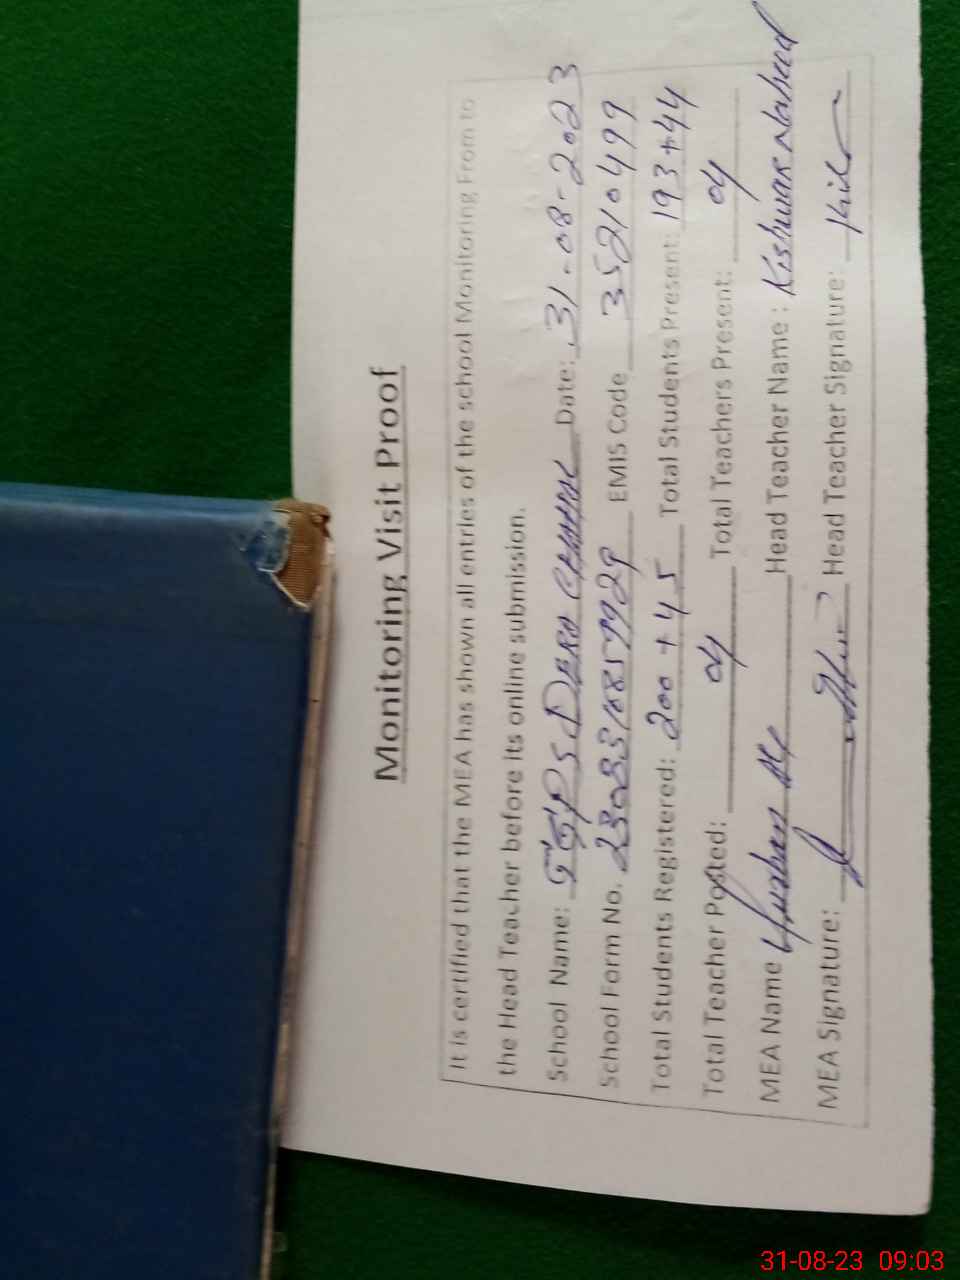 Monitoring Visit Proof
It is certified that the MEA has shown all entries of the school Monitoring From to
the Head Teacher before its online submission.
School Name: GGPS DERA CHAHAL Date: 31-08-2023
School Form No. EMIS Code 35210499
Total Students Registered: 200 + 45 Total Students Present: 193+44
Total Teacher Posted: 04 Total Teachers Present: 04
MEA Name Head Teacher Name: Kishwar Naheed
MEA Signature: Head Teacher Signature:
31-08-23 09:03